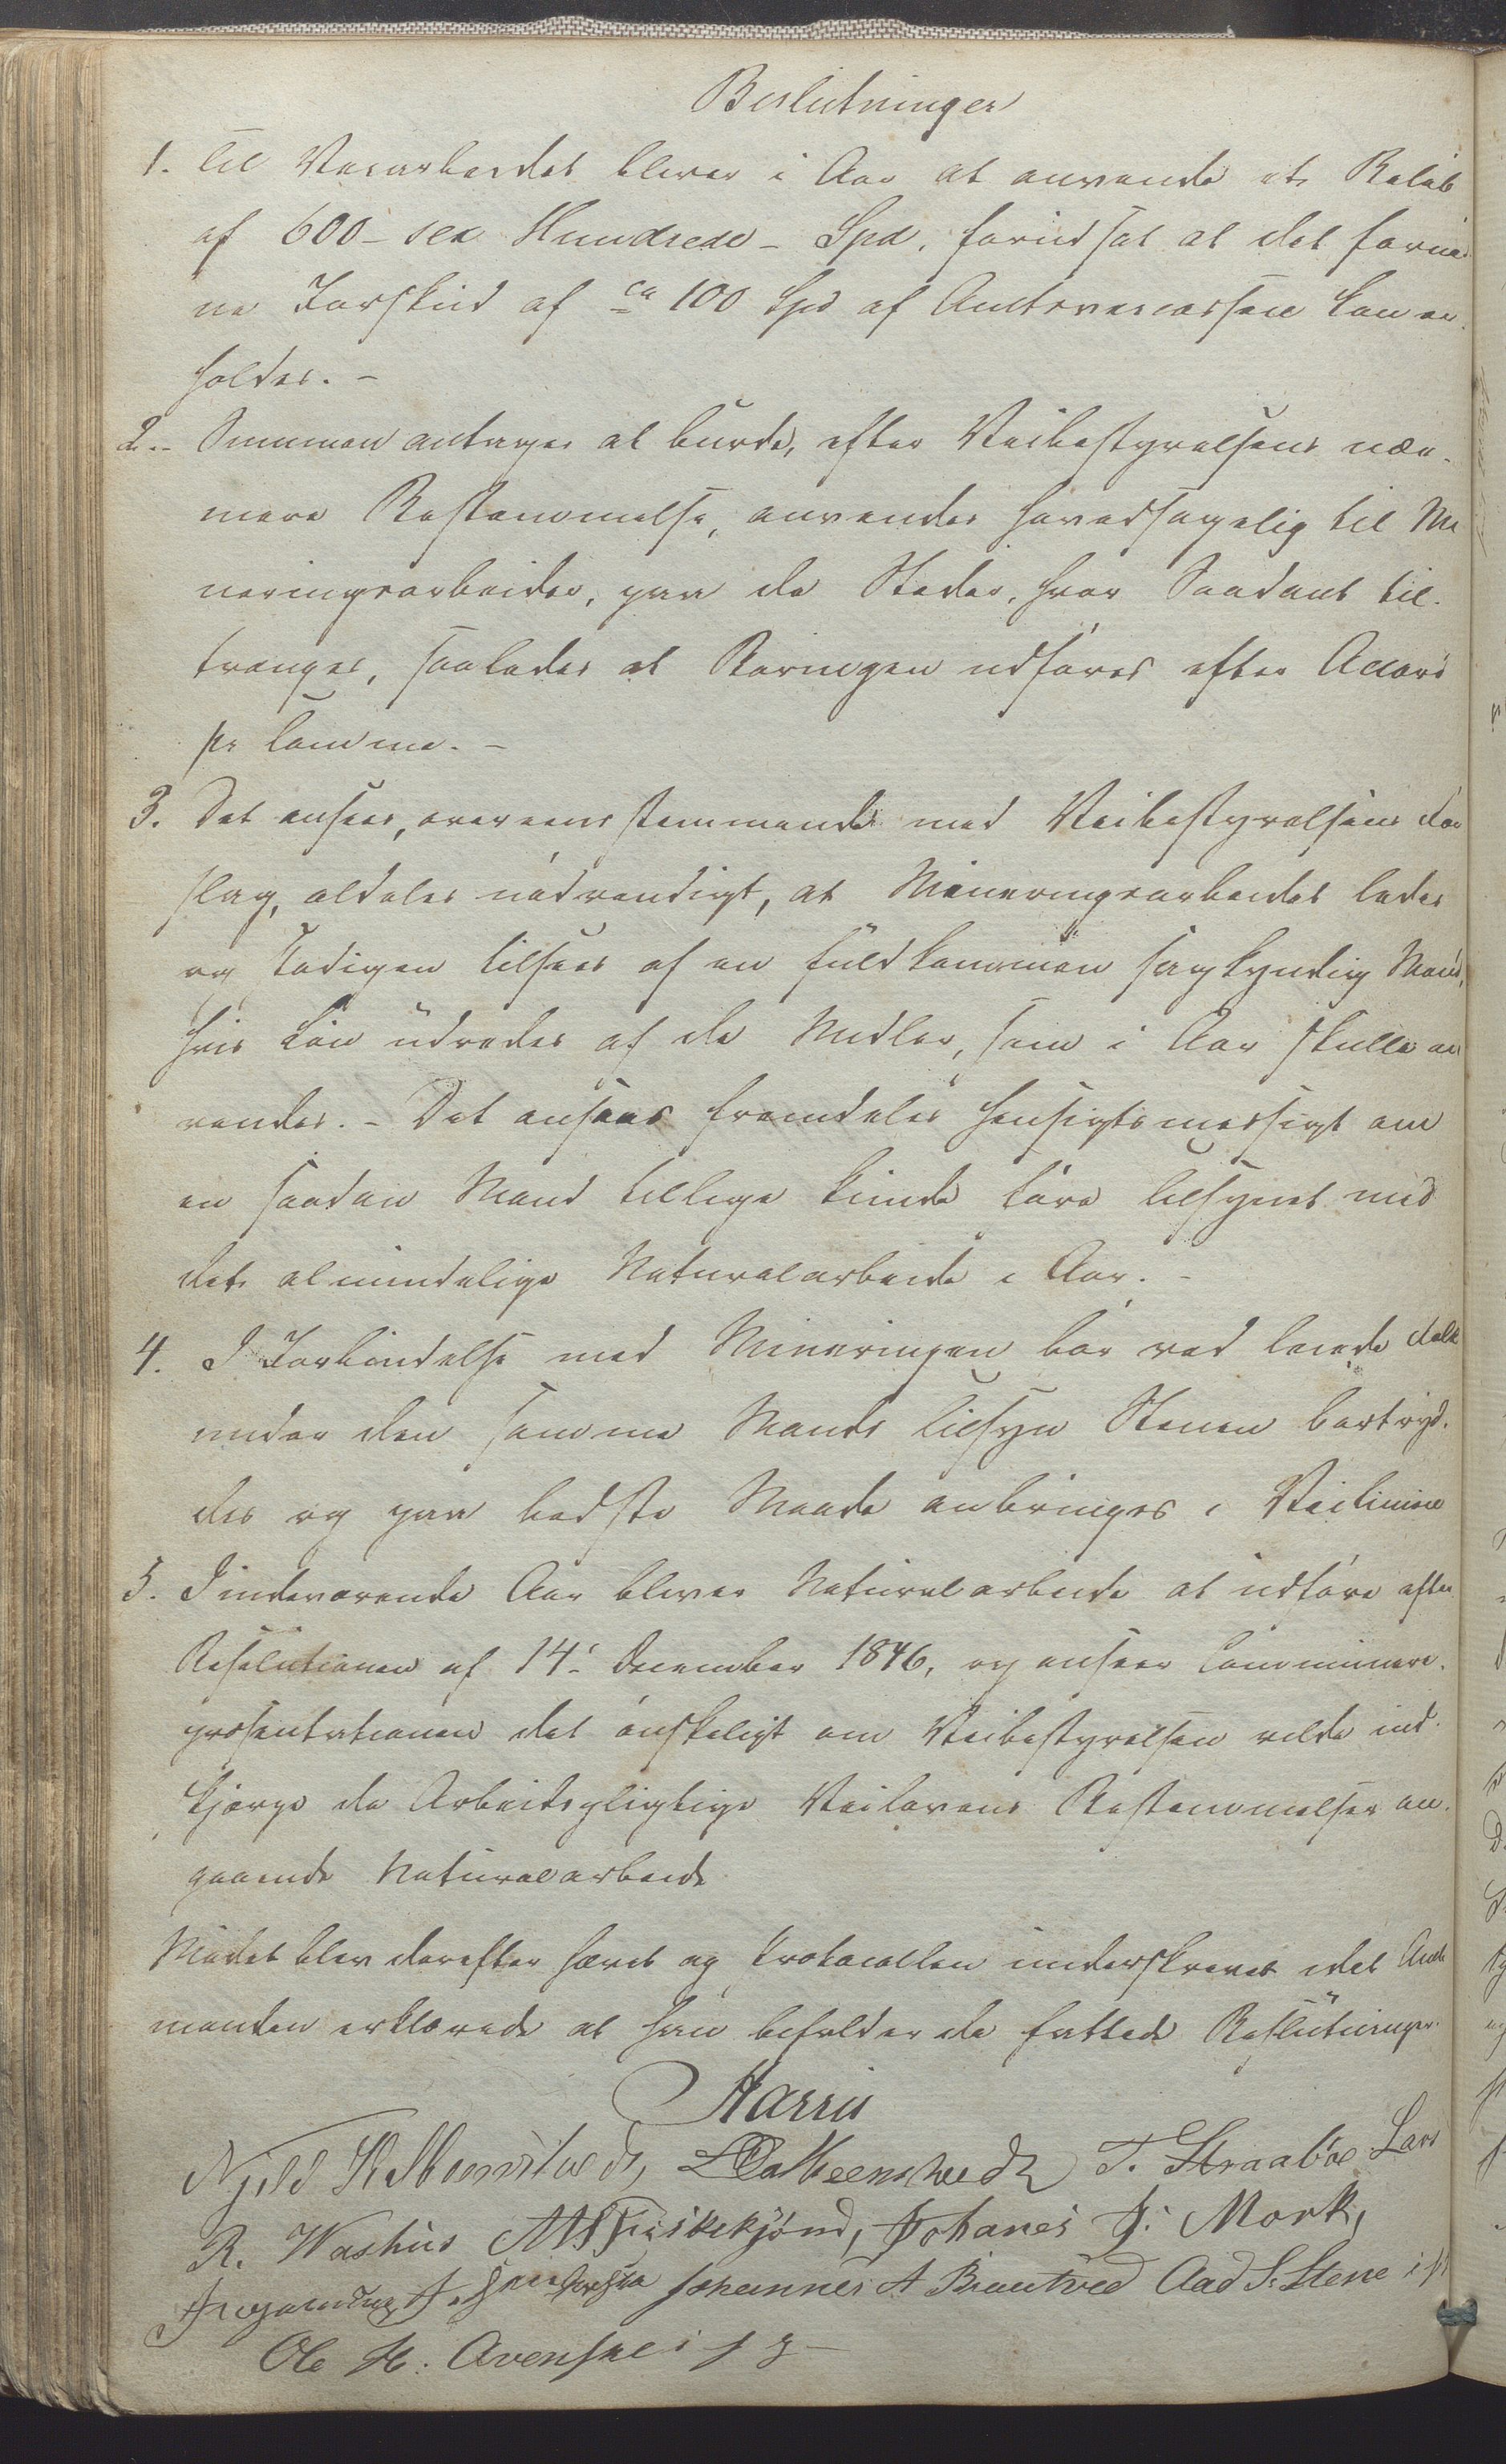 Beslutninger
1. Til Veiarbeidet bliver i Aar at anvende et Beløb
af 600 – sex Hundrede – Spd, forudsat at det fornød
ne Forskud af ca 100 Spd af Amtsveicassen kan er
holdes. –
2. – Summen antages at burde, efter Veibestyrelsens nær-
mere Bestemmelse, anvendes hovedsagelig til Mi
neringsarbeider, paa de Steder, hvor Saadant til-
trænges, saaledes at Boringen udføres efter Accord
pr Tomme. –
3. Det ansees, overeensstemmende med Veibestyrelsens For
slag, aldeles nødvendigt, at Mineringsarbeidet ledes
og stadigen tilsees af en fuldkommen sagkyndig Mand,
hvis Løn udredes af de Midler, som i Aar skulle an
vendes. – Det ansees fremdeles hensigtsmæssigt om
en saadan Mand tillige kunde føre Tilsynet med
det almindelige Naturalarbeide i Aar. –
4. I Forbindelse med Mineringen bør ved leiede Folk
under den samme Mands Tilsyn Stenen bortryd-
des og paa bedste Maade anbringes i Veilinien
5. I indeværende Aar bliver Naturalarbeide at udføre efter
Resolutionen af 14de December 1846, og anseer Communere-
præsentationen det ønskeligt om Veibestyrelsen vilde ind-
skjærpe de Arbeidspligtige Veilovens Bestemmelser an-
gaaende Naturalarbeide
Mødet blev derefter hævet og Protocollen underskrevet idet Amt
manden erklærede at han bifalder de fattede Beslutninger.
Aarris
Njeld K. T. Straaböe Lars
R. Washus Fiskekjönd, Johanes J. Mork,
Ingemund Johannes A Brautved Aad S. Stene i p
Ole H. Avensne i p g –